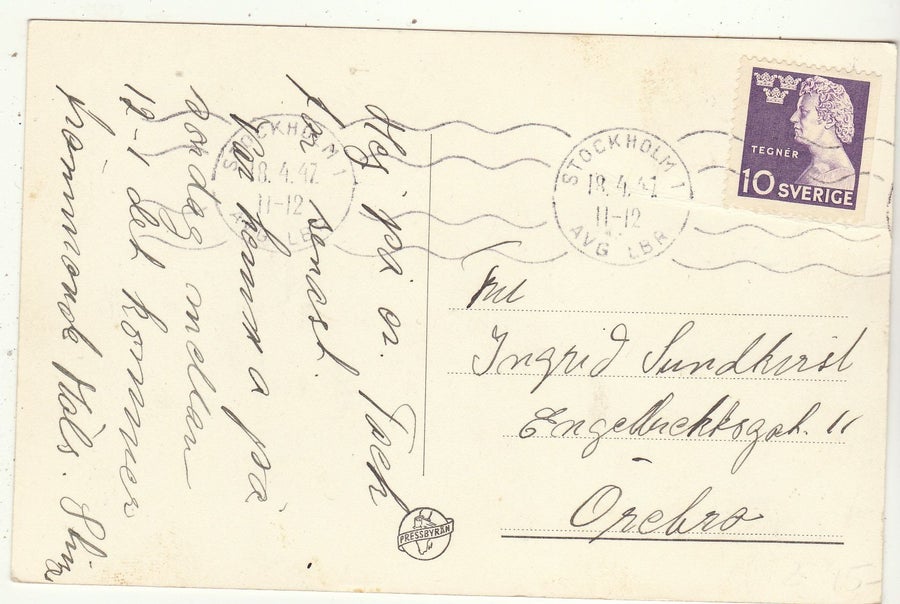 Hej på er. Tack
för senast.
Var hemma på
söndag mellan
12-1 det kommer
Häls. Stina
STOCKHOLM 1
18.4.47
11-12
AVG LBR
STOCKHOLM 1
18.4.47
11-12
AVG LBR
TEGNÉR
10 SVERIGE
Ingrid Sundkvist
Engelbrektsgat. 11
Örebro
PRESSBYRÅN